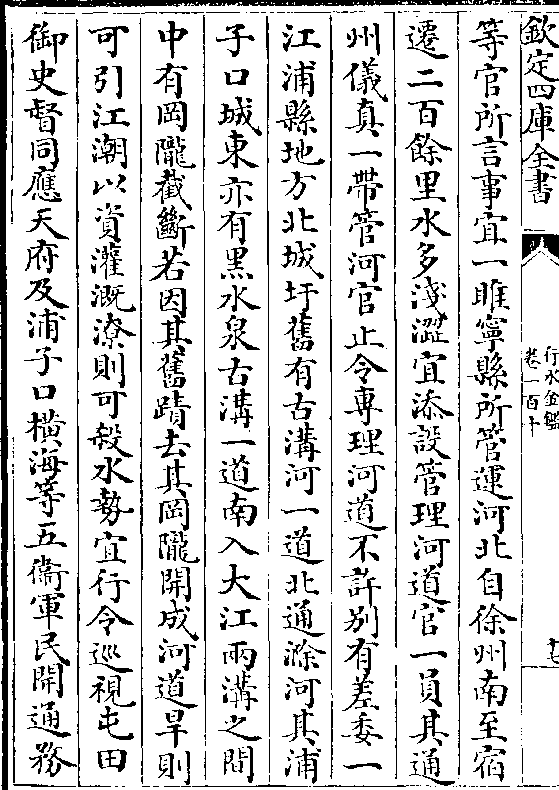 欽定四庫全書
行水金鑑
卷一百十
十七
等官所言事宜一睢寧縣所管運河北自徐州南至宿
遷二百餘里水多淺澀宜添設管理河道官一員其通
州儀真一帶管河官止令專理河道不許别有差委一
江浦縣地方北城圩舊有古溝河一道北通滁河其浦
子口城東亦有黑水泉古溝一道南入大江兩溝之間
中有岡隴截斷若因其舊蹟去其岡隴開成河道旱則
可引江潮以資灌溉潦則可殺水勢宜行令巡視屯田
御史督同應天府及浦子口橫海等五衞軍民開通務